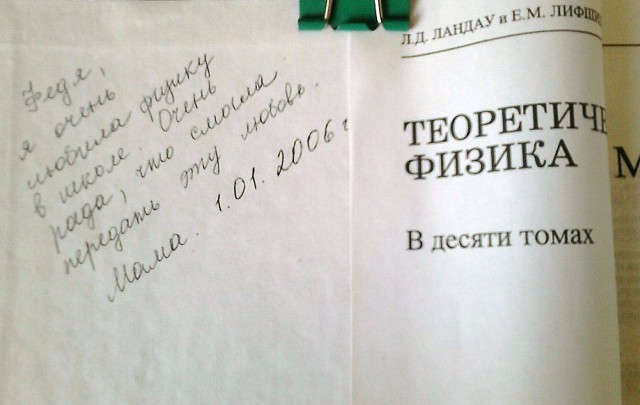 Федя,
я очень
любила физику
в школе. Очень
рада, что смогла
передать эту любовь.
Мама. 1.01.2006 г
Л.Д. ЛАНДАУ и Е.М. ЛИФШИ
ТЕОРЕТИЧЕ
ФИЗИКА
М
В десяти томах